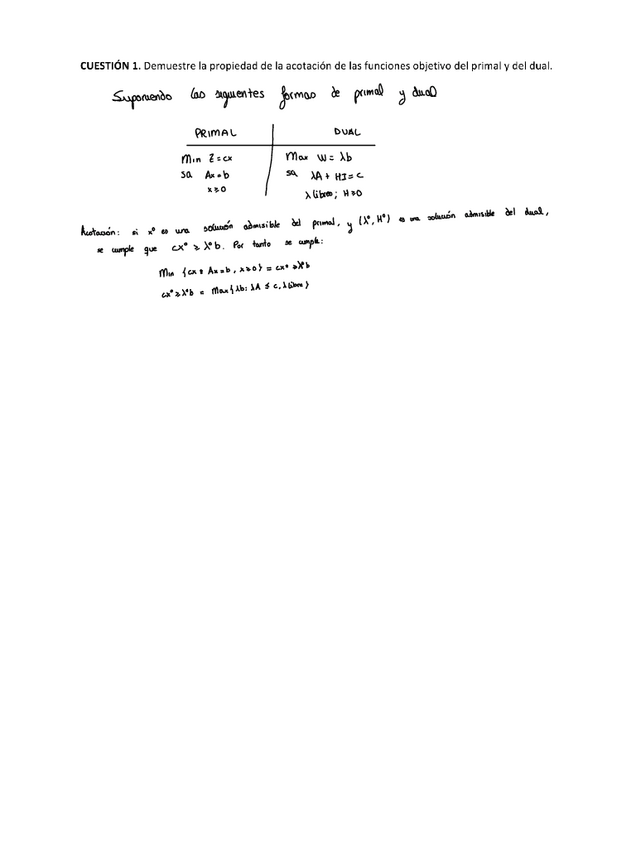 CUESTIÓN 1. Demuestre la propiedad de la acotación de las funciones objetivo del primal y del dual.
Suponiendo las siguientes formas de primal y dual
PRIMAL DUAL
Min Z = cx Max W = λb
sa Ax = b sa λA + HI = C
x ≥ 0 λ libre; H ≥ 0
Acotación: si x° es una solución admisible del primal, y (λ°, H°) es una solución admisible del dual,
se cumple que cx° ≥ λ°b. Por tanto se cumple:
Min {cx : Ax = b, x ≥ 0} = cx° ≥ λ°b
cx° ≥ λ°b = Max {λb: λA ≤ c, λ libre}